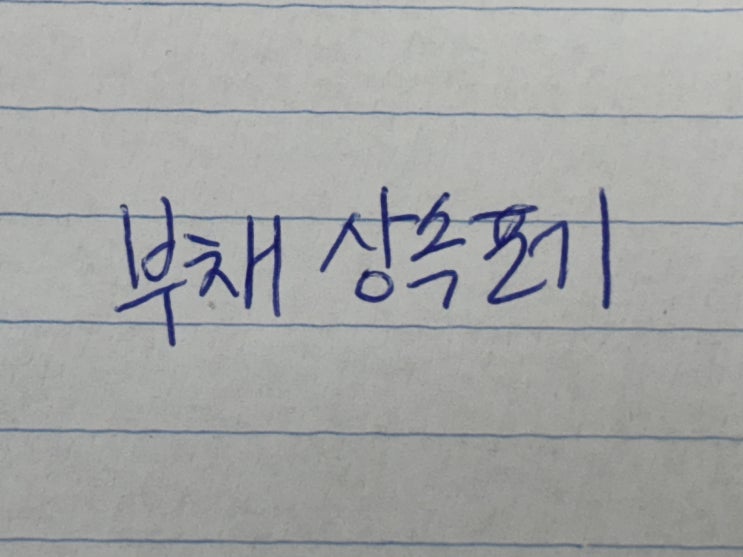 부채 상속포기